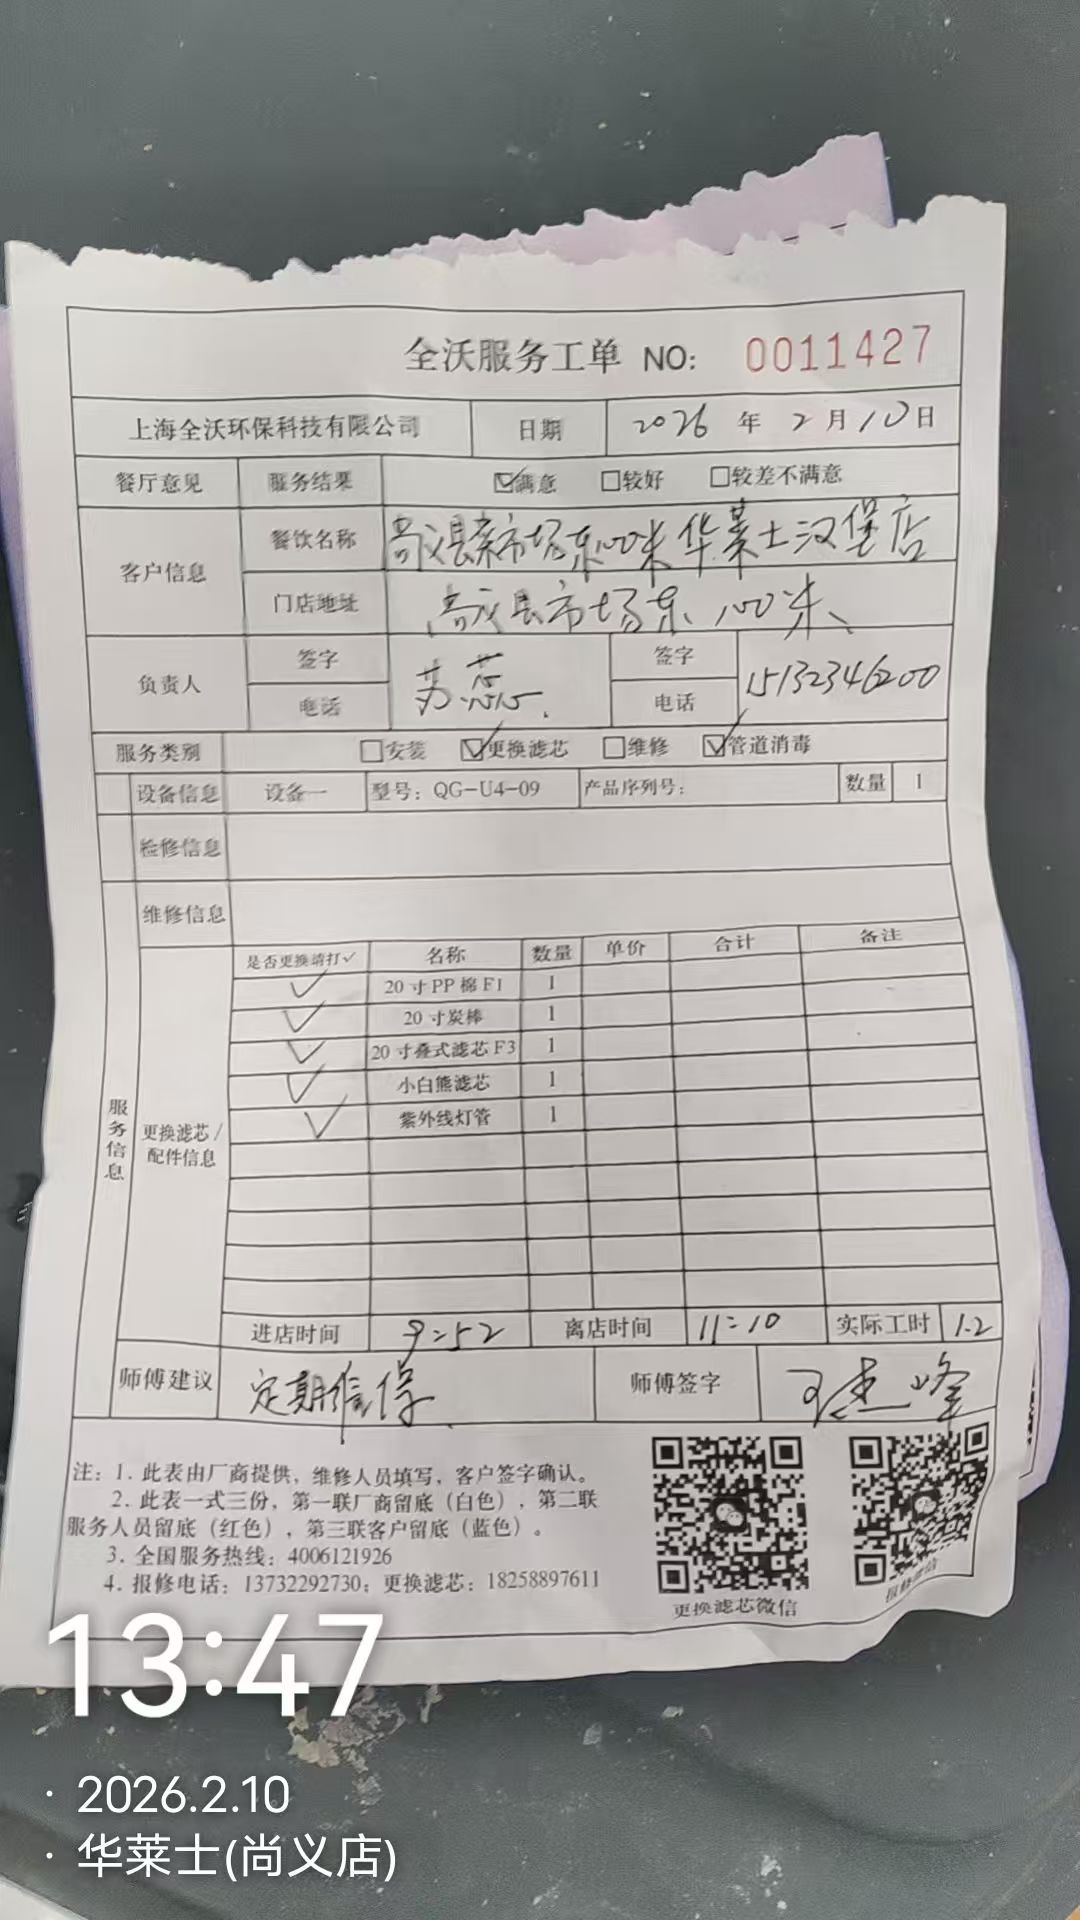 全沃服务工单 NO: 0011427
上海全沃环保科技有限公司 日期 2026 年 2 月 10 日
餐厅意见 服务结果 ☑满意 □较好 □较差不满意
客户信息 餐饮名称 尚义县菜市场东100米华莱士汉堡店
门店地址 尚义县市场东100米
负责人 签字 电话 苏蕊 签字 电话 15132346200
服务类别 □安装 ☑更换滤芯 □维修 ☑管道消毒
设备信息 设备一 型号：QG-U4-09 产品序列号： 数量 1
检修信息
维修信息
服务信息 更换滤芯/配件信息
是否更换请打✓ 名称 数量 单价 合计 备注
✓ 20寸PP棉F1 1
✓ 20寸炭棒 1
✓ 20寸叠式滤芯F3 1
✓ 小白熊滤芯 1
✓ 紫外线灯管 1
进店时间 9:52 离店时间 11:10 实际工时 1.2
师傅建议 定期维保 师傅签字 峰
注：1. 此表由厂商提供，维修人员填写，客户签字确认。
2. 此表一式三份，第一联厂商留底（白色），第二联
服务人员留底（红色），第三联客户留底（蓝色）。
3. 全国服务热线：4006121926
4. 报修电话：13732292730；更换滤芯：18258897611
更换滤芯微信
报修微信
13:47
· 2026.2.10
· 华莱士(尚义店)